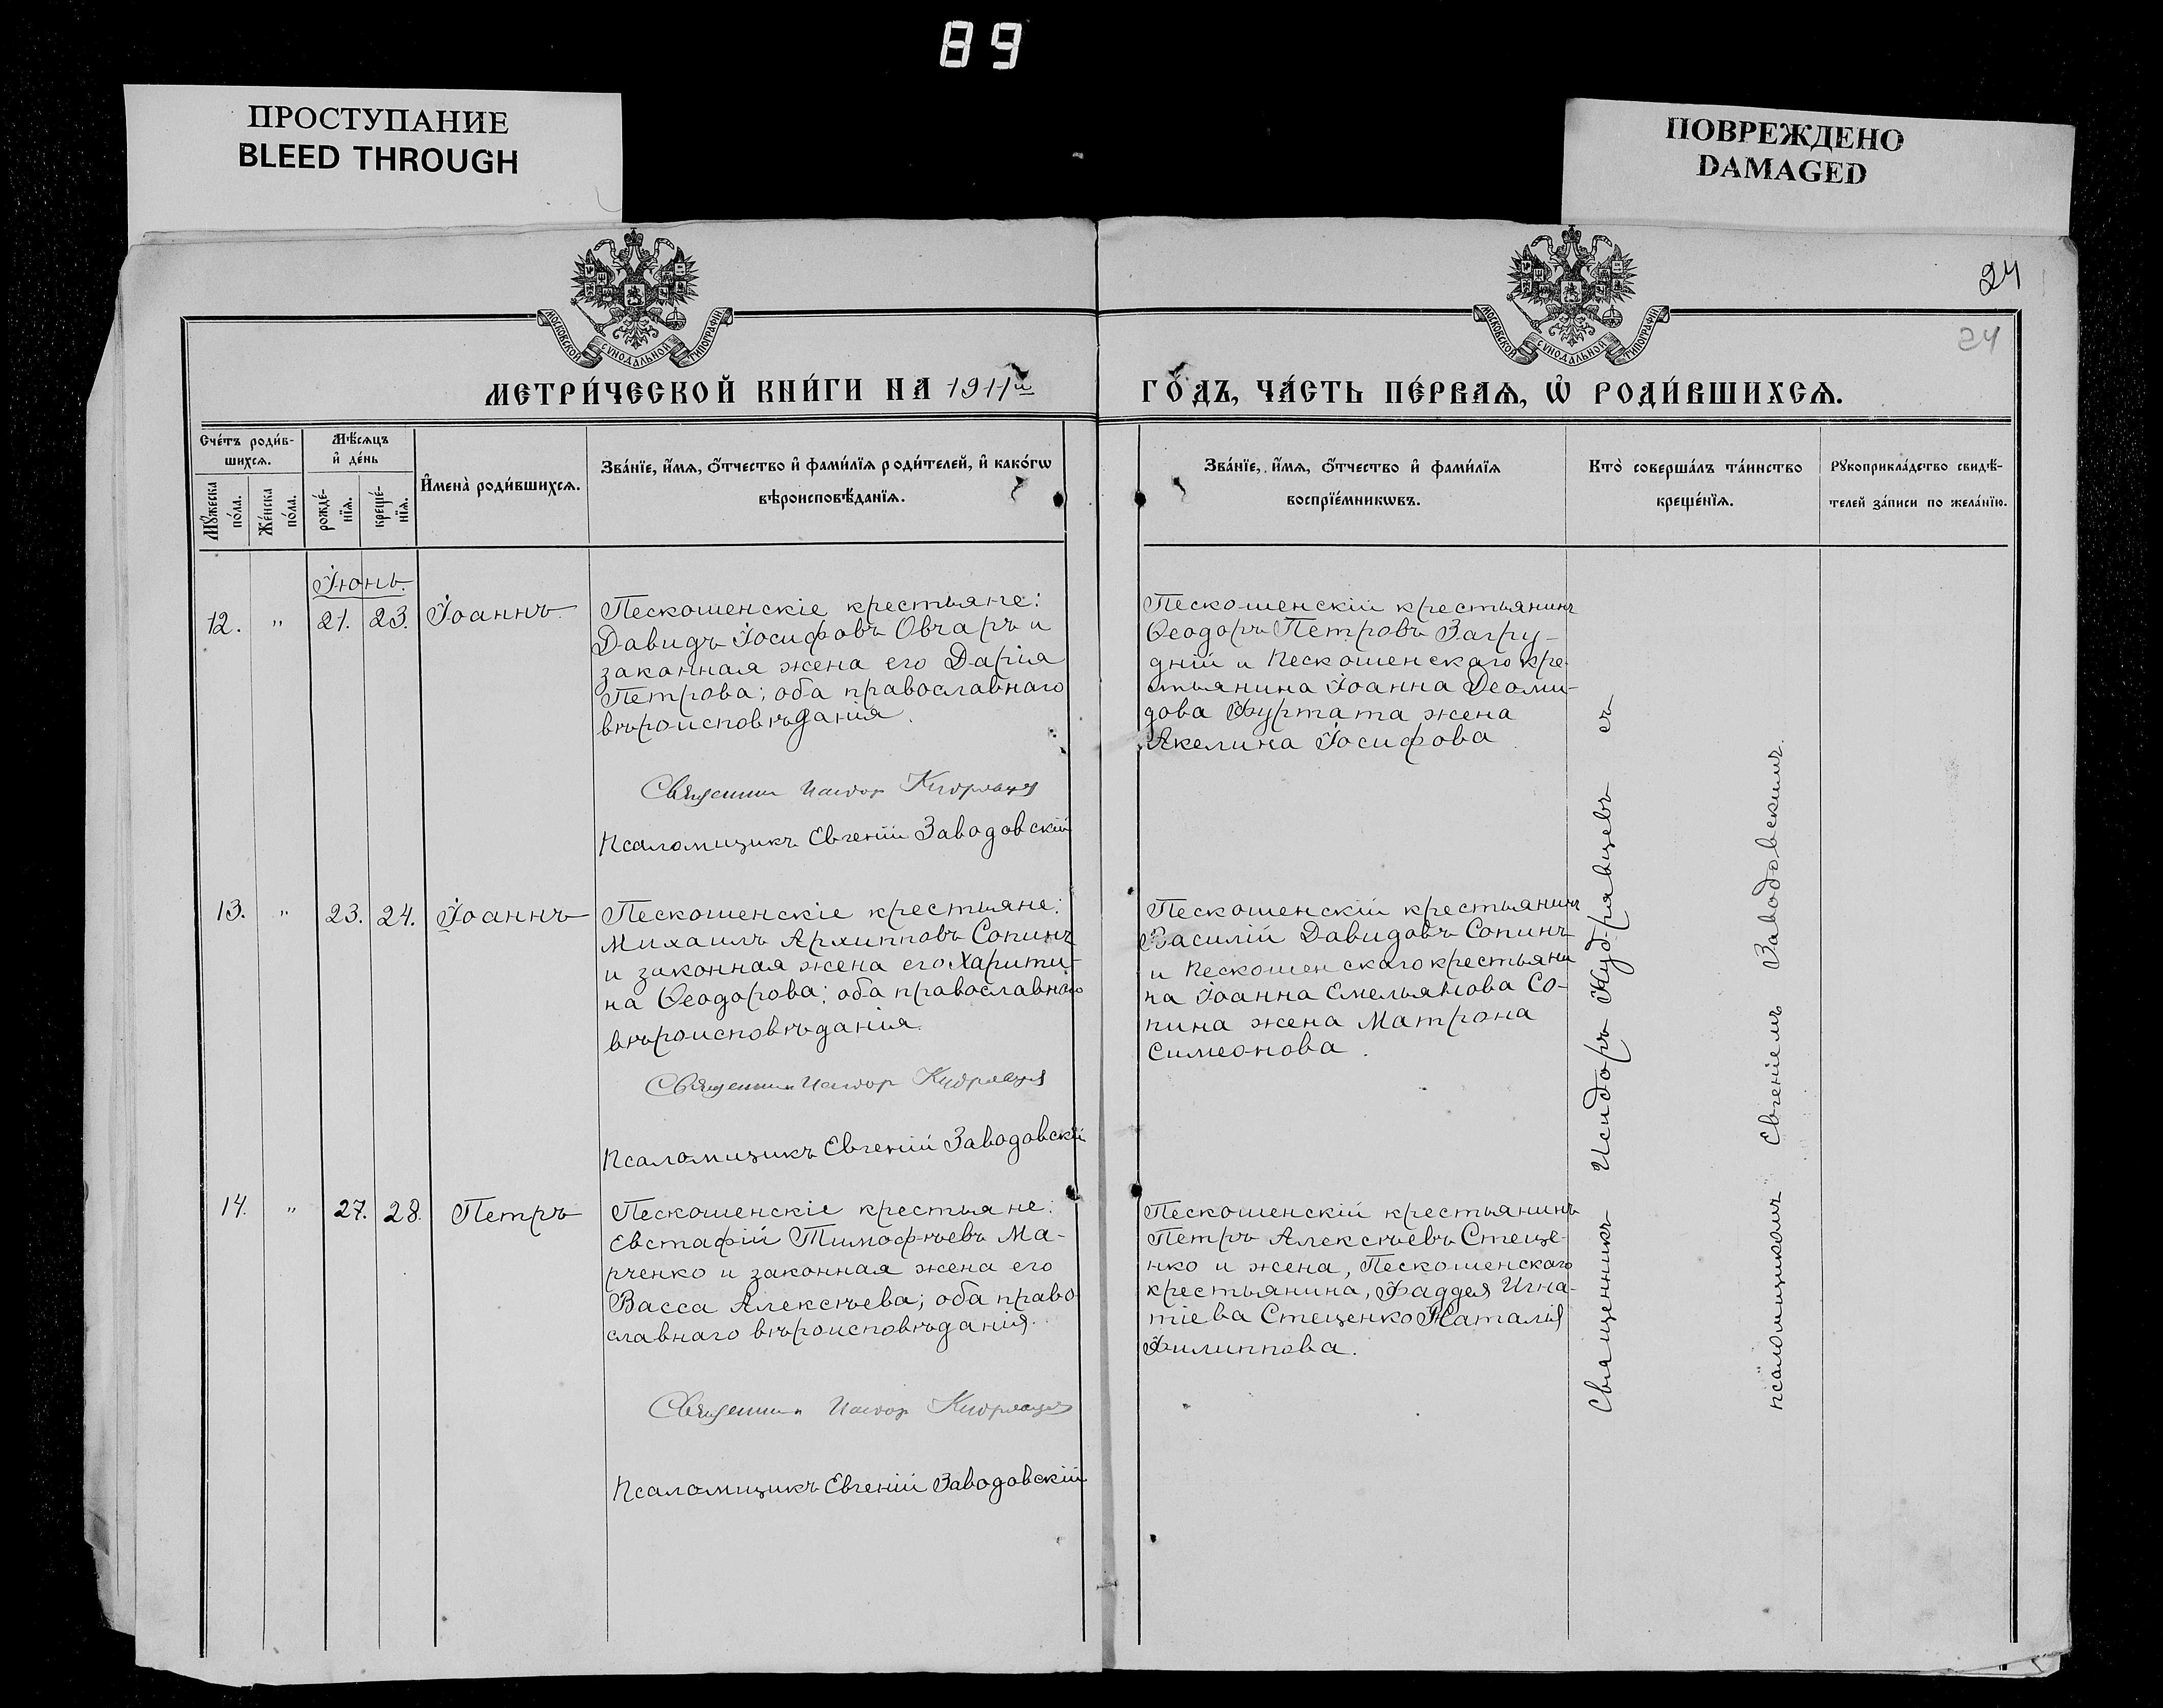 89
ПРОСТУПАНИЕ
BLEED THROUGH
ПОВРЕЖДЕНО
DAMAGED
24
24
МОСКОВСКОЙ СѴНОДАЛЬНОЙ ТИПОГРАФІИ
МОСКОВСКОЙ СѴНОДАЛЬНОЙ ТИПОГРАФІИ
МЕТРИ́ЧЕСКОЙ КНИ́ГИ НА 1911й
ГО́ДЪ, ЧА́СТЬ ПЕ́РВАѦ, Ѽ РОДИ́ВШИХСѦ.
Сче́тъ роди́в-
шихсѧ.
Мꙋ́жеска по́ла.
Же́нска по́ла.
Мѣ́сѧцъ
и҆ де́нь
рожде́-нїѧ.
креще́-нїѧ.
И҆мена̀ роди́вшихсѧ.
Зва́нїе, и҆́мѧ, ѻ҆́тчество и҆ фами́лїѧ роди́телей, и҆ како́гѡ
вѣроисповѣ́данїѧ.
Зва́нїе, и҆́мѧ, ѻ҆́тчество и҆ фами́лїѧ
воспрїе́мникѡвъ.
Кто̀ соверша́лъ та́инство
креще́нїѧ.
Рꙋкоприкла́дство свидѣ́-
телей за́писи по жела́нїю.
Іюнь.
12. " 21. 23. Іоаннъ
Пескошенскіе крестьяне:
Давидъ Іосифовъ Овчаръ и
законная жена его Дарія
Петрова; оба православнаго
вѣроисповѣданія.
Священник Исидор Кудрявцев
Псаломщикъ Евгеній Заводовскій
Пескошенскій крестьянинъ
Ѳеодоръ Петровъ Загру-
дній и Пескошенскаго кре-
стьянина Іоанна Деоми-
дова Фуртата жена
Акелина Іосифова
13. " 23. 24. Іоаннъ
Пескошенскіе крестьяне:
Михаилъ Архипповъ Сопинъ
и законная жена его Харити-
на Ѳеодорова; оба православнаго
вѣроисповѣданія.
Священник Исидор Кудрявцев
Псаломщикъ Евгеній Заводовскій
Пескошенскій крестьянинъ
Василій Давидовъ Сопинъ
и Пескошенскаго крестьяни
на Іоанна Емельянова Со-
пина жена Матрона
Симеонова.
14. " 27. 28. Петръ
Пескошенскіе крестьяне:
Евстафій Тимофѣевъ Ма-
рченко и законная жена его
Васса Алексѣева; оба право
славнаго вѣроисповѣданія.
Священник Исидор Кудрявцев
Псаломщикъ Евгеній Заводовскій
Пескошенскій крестьянинъ
Петръ Алексѣевъ Стеце-
нко и жена, Пескошенскаго
крестьянина, Фаддея Игна-
тіева Стеценко Наталія
Филиппова.
Священникъ Исидоръ Кудрявцевъ съ
псаломщикомъ Евгеніемъ Заводовскимъ.